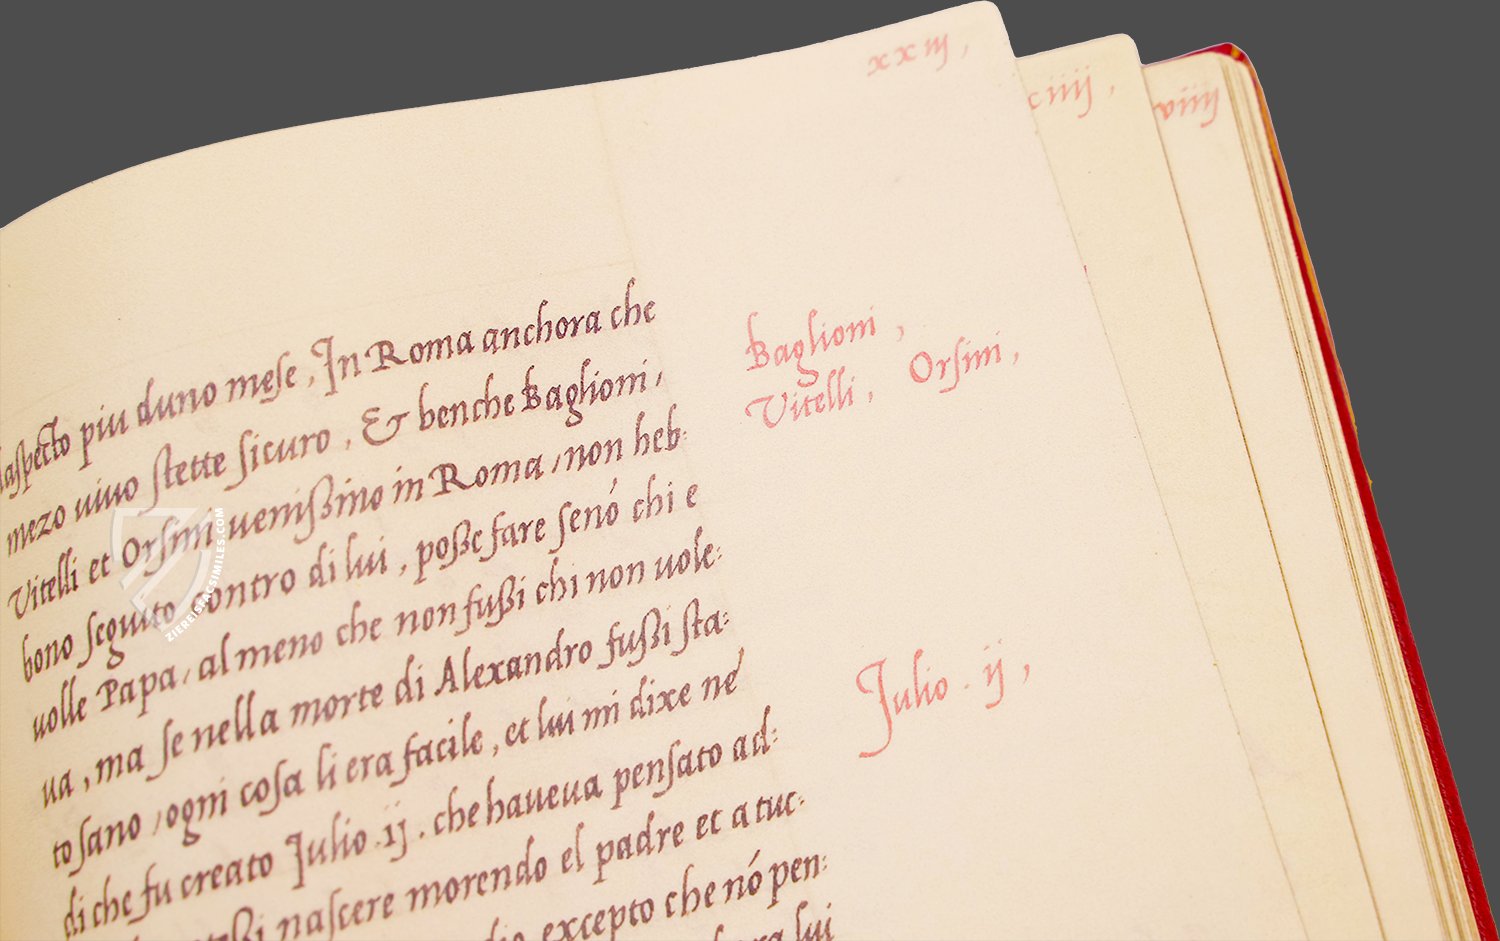 xxiij,
ciiij,
viiij
laspecto piu duno mese, In Roma anchora che
mezo uiuo stette sicuro, & benche Baglioni,
Vitelli et Orsini uenissino in Roma, non heb:
bono seguito contro di lui, posse fare senó chi e
uolle Papa, al meno che non fussi chi non uole:
ua, ma se nella morte di Alexandro fussi sta:
to sano, ogni cosa li era facile, et lui mi dixe ne
di che fu creato Julio .ij. che haueua pensato ad:
nascere morendo el padre et a tuc:
excepto che nó pen:
lui
Baglioni,
Vitelli, Orsini,
Julio . ij,
ZIEREISFACSIMILES.COM